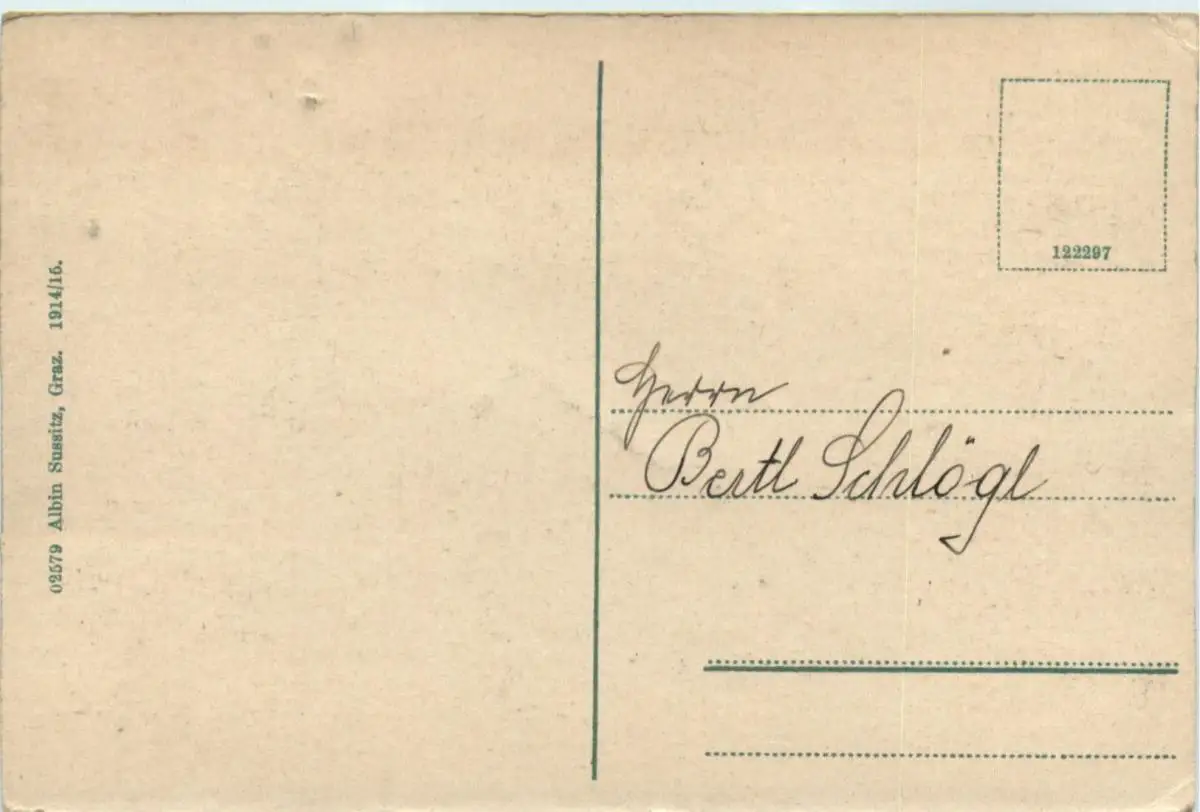 02579 Albin Sussitz, Graz. 1914/15.
122297
Herrn
Bertl Schlögl